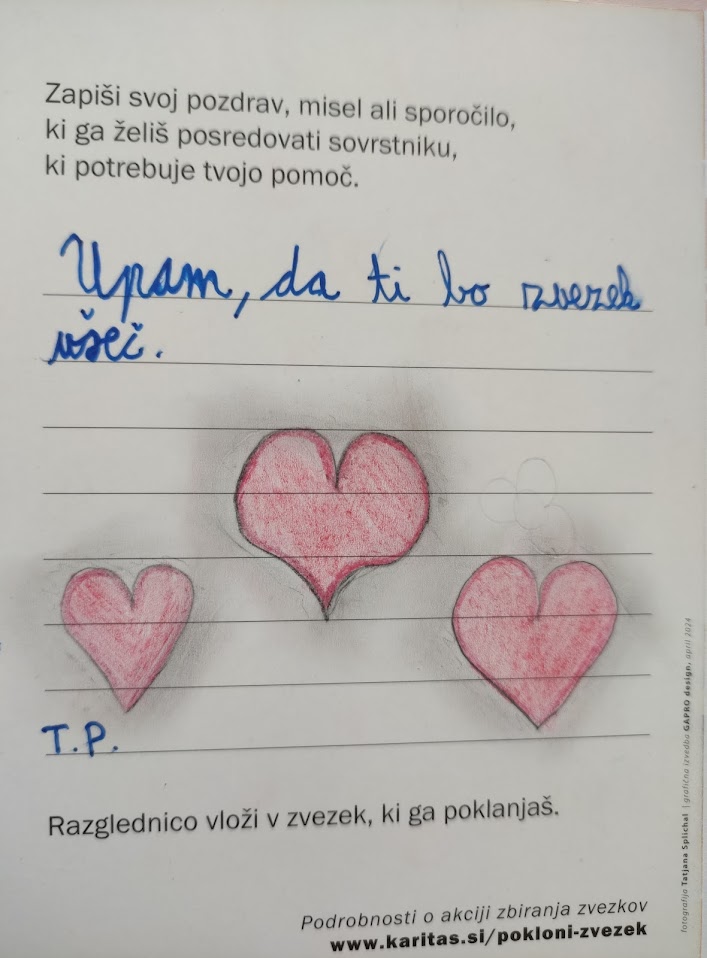 Zapiši svoj pozdrav, misel ali sporočilo,
ki ga želiš posredovati sovrstniku,
ki potrebuje tvojo pomoč.
Upam, da ti bo zvezek
všeč.
T.P.
Razglednico vloži v zvezek, ki ga poklanjaš.
Podrobnosti o akciji zbiranja zvezkov
www.karitas.si/pokloni-zvezek
fotografija Tatjana Splichal | grafična izvedba GAPRO design, april 2024